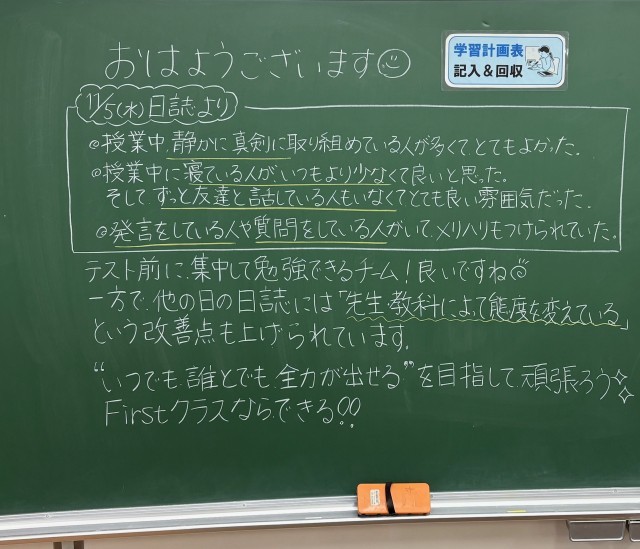 おはようございます
学習計画表
記入&回収
11/5(水)日誌より
◎授業中、静かに真剣に取り組めている人が多くて、とてもよかった。
◎授業中に寝ている人が、いつもより少なくて良いと思った。
そしてずっと友達と話している人もいなくてとても良い雰囲気だった。
◎発言をしている人や質問をしている人がいてメリハリもつけられていた。
テスト前に、集中して勉強できるチーム!良いですね
一方で、他の日の日誌には「先生・教科によって態度を変えている」
という改善点も上げられています。
“いつでも、誰とでも、全力が出せる”を目指して頑張ろう
Firstクラスならできる!!